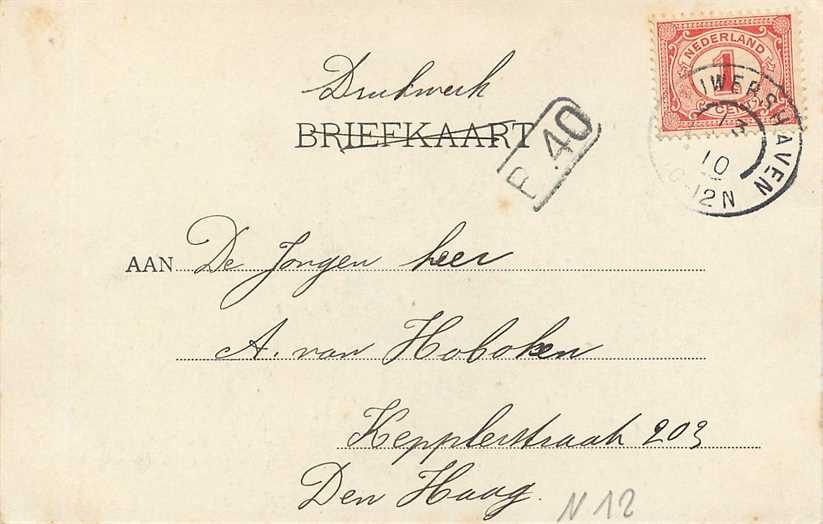 NEDERLAND
1
CENT
IWERSHAVEN
10
10-12N
Drukwerk
BRIEFKAART
P. 40
AAN De Jongen heer
A. van Hoboken
Kepplerstraat 203
Den Haag.
N 12